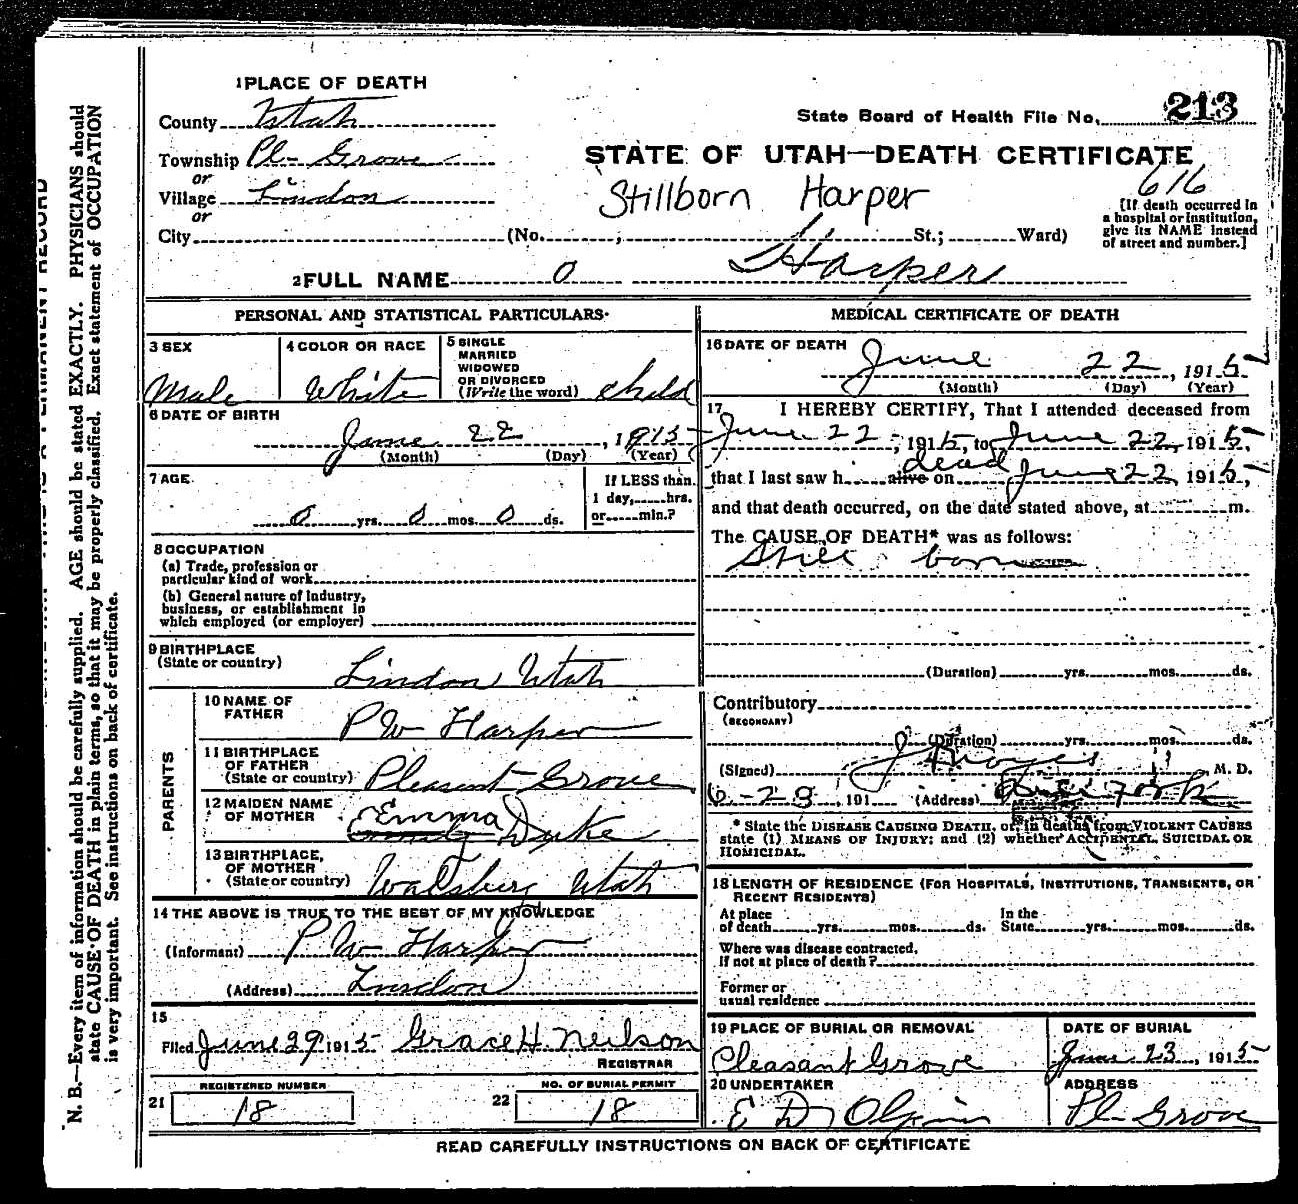 1 PLACE OF DEATH
County Utah
State Board of Health File No. 213
Township Pl- Grove
or
STATE OF UTAH—DEATH CERTIFICATE
616
Village Lindon
or
Stillborn Harper
[If death occurred in
a hospital or institution,
give its NAME instead
of street and number.]
City (No. , St.; Ward)
2 FULL NAME 0 Harper
PERSONAL AND STATISTICAL PARTICULARS
3 SEX
Male
4 COLOR OR RACE
White
5 SINGLE
MARRIED
WIDOWED
OR DIVORCED
(Write the word) child
6 DATE OF BIRTH
June 22, 1915
(Month) (Day) (Year)
7 AGE
0 yrs. 0 mos. 0 ds.
If LESS than
1 day, hrs.
or min.?
8 OCCUPATION
(a) Trade, profession or
particular kind of work
(b) General nature of industry,
business, or establishment in
which employed (or employer)
9 BIRTHPLACE
(State or country)
Lindon Utah
PARENTS
10 NAME OF
FATHER
P W Harper
11 BIRTHPLACE
OF FATHER
(State or country) Pleasant Grove
12 MAIDEN NAME
OF MOTHER
Emma Duke
13 BIRTHPLACE,
OF MOTHER
(State or country) Walsburg Utah
14 THE ABOVE IS TRUE TO THE BEST OF MY KNOWLEDGE
(Informant) P W Harper
(Address) Lindon
15
Filed June 29 1915 Grace H. Neilson
REGISTRAR
REGISTERED NUMBER
21 18
NO. OF BURIAL PERMIT
22 18
MEDICAL CERTIFICATE OF DEATH
16 DATE OF DEATH
June 22, 1915
(Month) (Day) (Year)
17 I HEREBY CERTIFY, That I attended deceased from
June 22, 1915, to June 22, 1915,
that I last saw h alive dead on June 22, 1915,
and that death occurred, on the date stated above, at m.
The CAUSE OF DEATH* was as follows:
Still born
(Duration) yrs. mos. ds.
Contributory
(SECONDARY)
(Duration) yrs. mos. ds.
(Signed) J F Noyes, M. D.
6-28, 191 (Address)
* State the DISEASE CAUSING DEATH, or, in deaths from VIOLENT CAUSES
state (1) MEANS OF INJURY; and (2) whether ACCIDENTAL, SUICIDAL OR
HOMICIDAL.
18 LENGTH OF RESIDENCE (FOR HOSPITALS, INSTITUTIONS, TRANSIENTS, OR
RECENT RESIDENTS)
At place
of death yrs. mos. ds.
In the
State yrs. mos. ds.
Where was disease contracted,
if not at place of death?
Former or
usual residence
19 PLACE OF BURIAL OR REMOVAL
Pleasant Grove
DATE OF BURIAL
June 23, 1915
20 UNDERTAKER
E D Olpin
ADDRESS
Pl- Grove
READ CAREFULLY INSTRUCTIONS ON BACK OF CERTIFICATE
N. B.—Every item of information should be carefully supplied. AGE should be stated EXACTLY. PHYSICIANS should
state CAUSE OF DEATH in plain terms, so that it may be properly classified. Exact statement of OCCUPATION
is very important. See instructions on back of certificate.